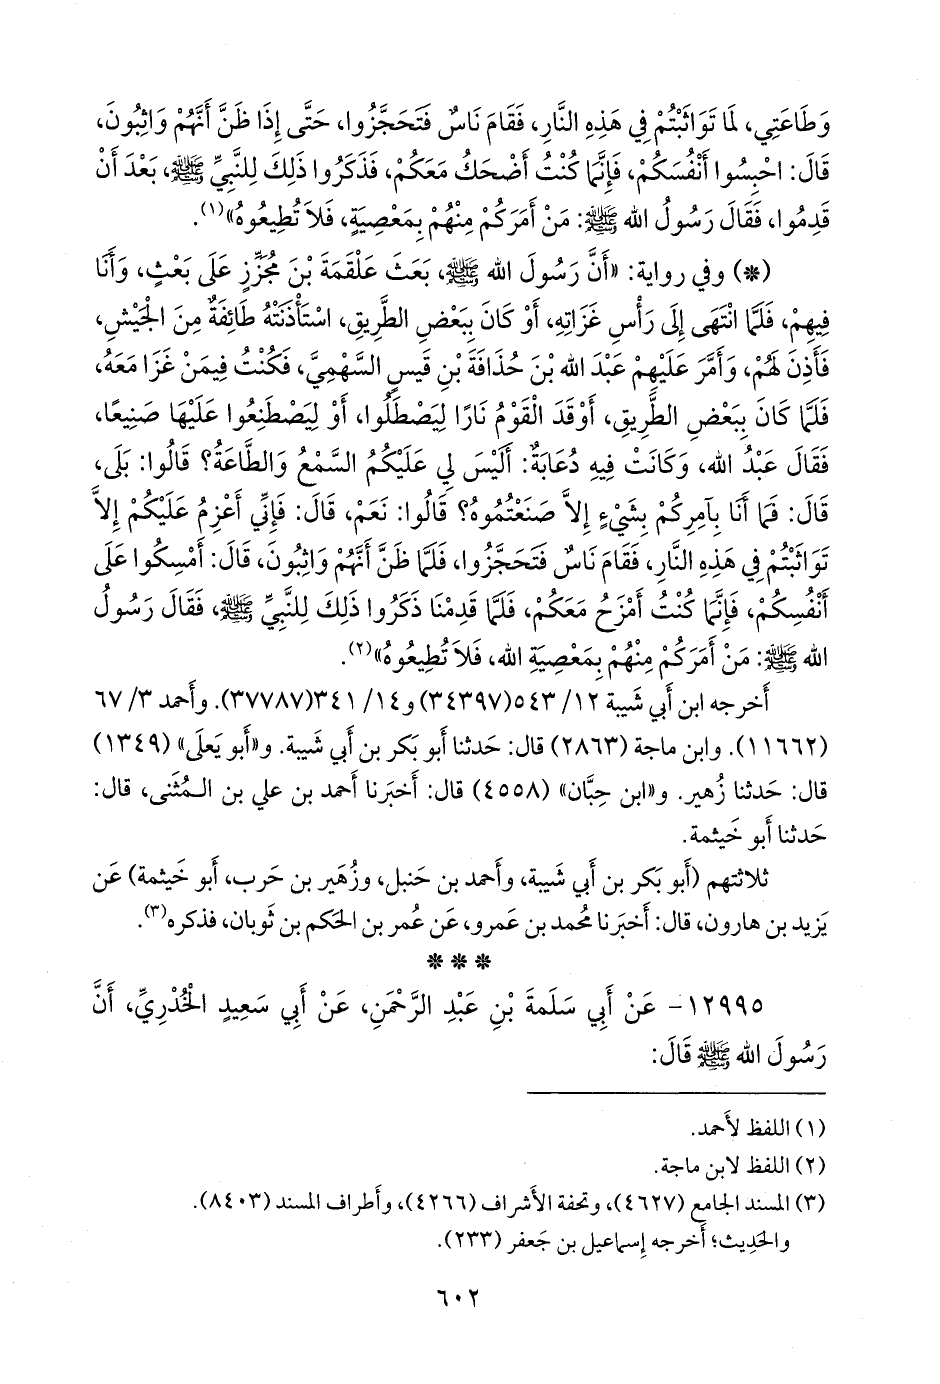 وَطَاعَتِي، لَمَا تَوَاثَبْتُمْ فِي هَذِهِ النَّارِ، فَقَامَ نَاسٌ فَتَحَجَّزُوا، حَتَّى إِذَا ظَنَّ أَنَّهُمْ وَاثِبُونَ،
قَالَ: احْبِسُوا أَنْفُسَكُمْ، فَإِنَّمَا كُنْتُ أَضْحَكُ مَعَكُمْ، فَذَكَرُوا ذَلِكَ لِلنَّبِيِّ ﷺ، بَعْدَ أَنْ
قَدِمُوا، فَقَالَ رَسُولُ الله ﷺ: مَنْ أَمَرَكُمْ مِنْهُمْ بِمَعْصِيَةٍ، فَلاَ تُطِيعُوهُ»(١).
(*) وفي رواية: «أَنَّ رَسُولَ الله ﷺ، بَعَثَ عَلْقَمَةَ بْنَ مُجَزِّزٍ عَلَى بَعْثٍ، وَأَنَا
فِيهِمْ، فَلَمَّا انْتَهَى إِلَى رَأْسِ غَزَاتِهِ، أَوْ كَانَ بِبَعْضِ الطَّرِيقِ، اسْتَأْذَنَتْهُ طَائِفَةٌ مِنَ الْجَيْشِ،
فَأَذِنَ لَهُمْ، وَأَمَّرَ عَلَيْهِمْ عَبْدَ الله بْنَ حُذَافَةَ بْنِ قَيْسٍ السَّهْمِيَّ، فَكُنْتُ فِيمَنْ غَزَا مَعَهُ،
فَلَمَّا كَانَ بِبَعْضِ الطَّرِيقِ، أَوْقَدَ الْقَوْمُ نَارًا لِيَصْطَلُوا، أَوْ لِيَصْطَنِعُوا عَلَيْهَا صَنِيعًا،
فَقَالَ عَبْدُ الله، وَكَانَتْ فِيهِ دُعَابَةٌ: أَلَيْسَ لِي عَلَيْكُمُ السَّمْعُ وَالطَّاعَةُ؟ قَالُوا: بَلَى،
قَالَ: فَمَا أَنَا بِآمِرِكُمْ بِشَيْءٍ إِلاَّ صَنَعْتُمُوهُ؟ قَالُوا: نَعَمْ، قَالَ: فَإِنِّي أَعْزِمُ عَلَيْكُمْ إِلاَّ
تَوَاثَبْتُمْ فِي هَذِهِ النَّارِ، فَقَامَ نَاسٌ فَتَحَجَّزُوا، فَلَمَّا ظَنَّ أَنَّهُمْ وَاثِبُونَ، قَالَ: أَمْسِكُوا عَلَى
أَنْفُسِكُمْ، فَإِنَّمَا كُنْتُ أَمْزَحُ مَعَكُمْ، فَلَمَّا قَدِمْنَا ذَكَرُوا ذَلِكَ لِلنَّبِيِّ ﷺ، فَقَالَ رَسُولُ
الله ﷺ: مَنْ أَمَرَكُمْ مِنْهُمْ بِمَعْصِيَةِ الله، فَلاَ تُطِيعُوهُ»(٢).
أَخرجه ابن أَبي شَيبة ١٢/ ٥٤٣(٣٤٣٩٧) و١٤/ ٣٤١(٣٧٧٨٧). وأَحمد ٣/ ٦٧
(١١٦٦٢). وابن ماجة (٢٨٦٣) قال: حَدثنا أَبو بَكر بن أَبي شَيبة. و«أَبو يَعلَى» (١٣٤٩)
قال: حَدثنا زُهير. و«ابن حِبَّان» (٤٥٥٨) قال: أَخبَرنا أَحمد بن علي بن الـمُثَنى، قال:
حَدثنا أَبو خَيثمة.
ثلاثتهم (أَبو بَكر بن أَبي شَيبة، وأَحمد بن حَنبل، وزُهَير بن حَرب، أَبو خَيثمة) عَن
يَزيد بن هارون، قال: أَخبَرنا مُحمد بن عَمرو، عَن عُمر بن الحَكم بن ثَوبان، فذكره(٣).
* * *
١٢٩٩٥- عَنْ أَبِي سَلَمَةَ بْنِ عَبْدِ الرَّحْمَنِ، عَنْ أَبِي سَعِيدٍ الْخُدْرِيِّ، أَنَّ
رَسُولَ الله ﷺ قَالَ:
(١) اللفظ لأَحمد.
(٢) اللفظ لابن ماجة.
(٣) المسند الجامع (٤٦٢٧)، وتحفة الأَشراف (٤٢٦٦)، وأَطراف المسند (٨٤٠٣).
والحَدِيث؛ أَخرجه إِسماعيل بن جَعفر (٢٣٣).
٦٠٢